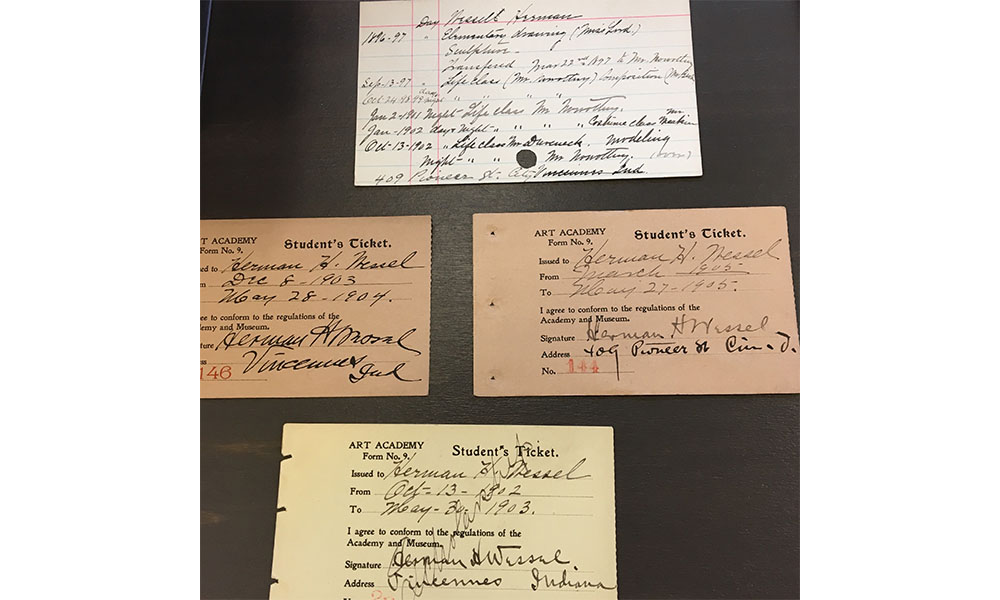 Day Wessell Herman
1896-97 " Elementary drawing (Miss Lord)
Sculpture
Transfered Mar 22nd 1897 to Mr. Nowottny
Sep-13-97 " Life class (Mr. Nowottny) Composition (Mr
Oct-24-98-99 " " " "
Jan 2-1901 Night Life class Mr Nowottny.
Jan-1902 day & Night " " " " Costume class Mr
Oct-13-1902 " Life class Mr Duveneck. Modeling
Night " " Mr Nowottny.
409 Pioneer St. City Vincennes Ind.
T ACADEMY
Form No. 9.
Student's Ticket.
ed to Herman H. Wessel
m Dec 8-1903
May 28-1904.
ee to conform to the regulations of the
ademy and Museum.
ture Herman H Wessel
ss Vincennes Ind
146
ART ACADEMY
Form No. 9.
Student's Ticket.
Issued to Herman H. Wessel
From March 1905
To May 27-1905.
I agree to conform to the regulations of the
Academy and Museum.
Signature Herman H Wessel
Address 409 Pioneer St Cin-O.
No. 144
ART ACADEMY
Form No. 9.
Student's Ticket.
Issued to Herman H. Wessel
From Oct-13-1902
To May-30-1903.
I agree to conform to the regulations of the
Academy and Museum.
Signature Herman H Wessel.
Address Vincennes Indiana
Scholarship